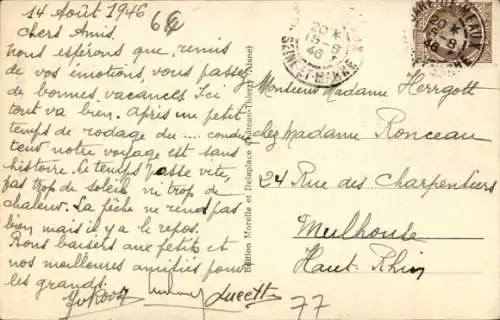 14 Août 1946
Chers Amis.
Nous espérons que, remis
de vos émotions, vous passez
de bonnes vacances. Ici
tout va bien. Après un petit
temps de rodage du .... conducteur
notre voyage est sans
histoire. Le temps passe vite,
pas trop de soleil ni trop de
chaleur. La pêche ne rend pas
bien mais il y a le repos.
Bons baisers aux petits et
nos meilleures amitiés pour
les grands.
Lucette
66
77
Edition Morelle et Delaplace Château-Thierry (Aisne)
20 *
15-8
46
SEINE-ET-MARNE
20 *
15-8
46
Monsieur Madame Herrgott
chez Madame Ronceau
24 Rue des Charpentiers
Mulhouse
Haut Rhin